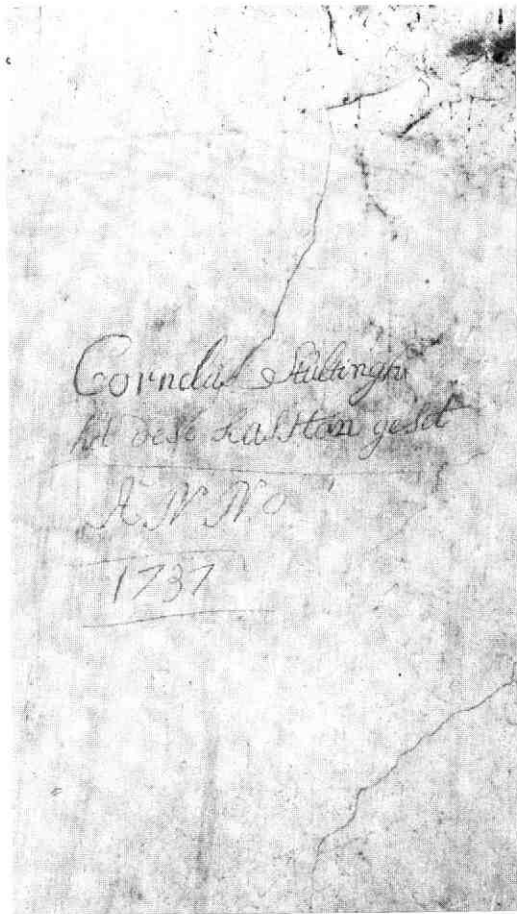 Cornelis Stultingh
het dese kassten geset
ANNO
1737